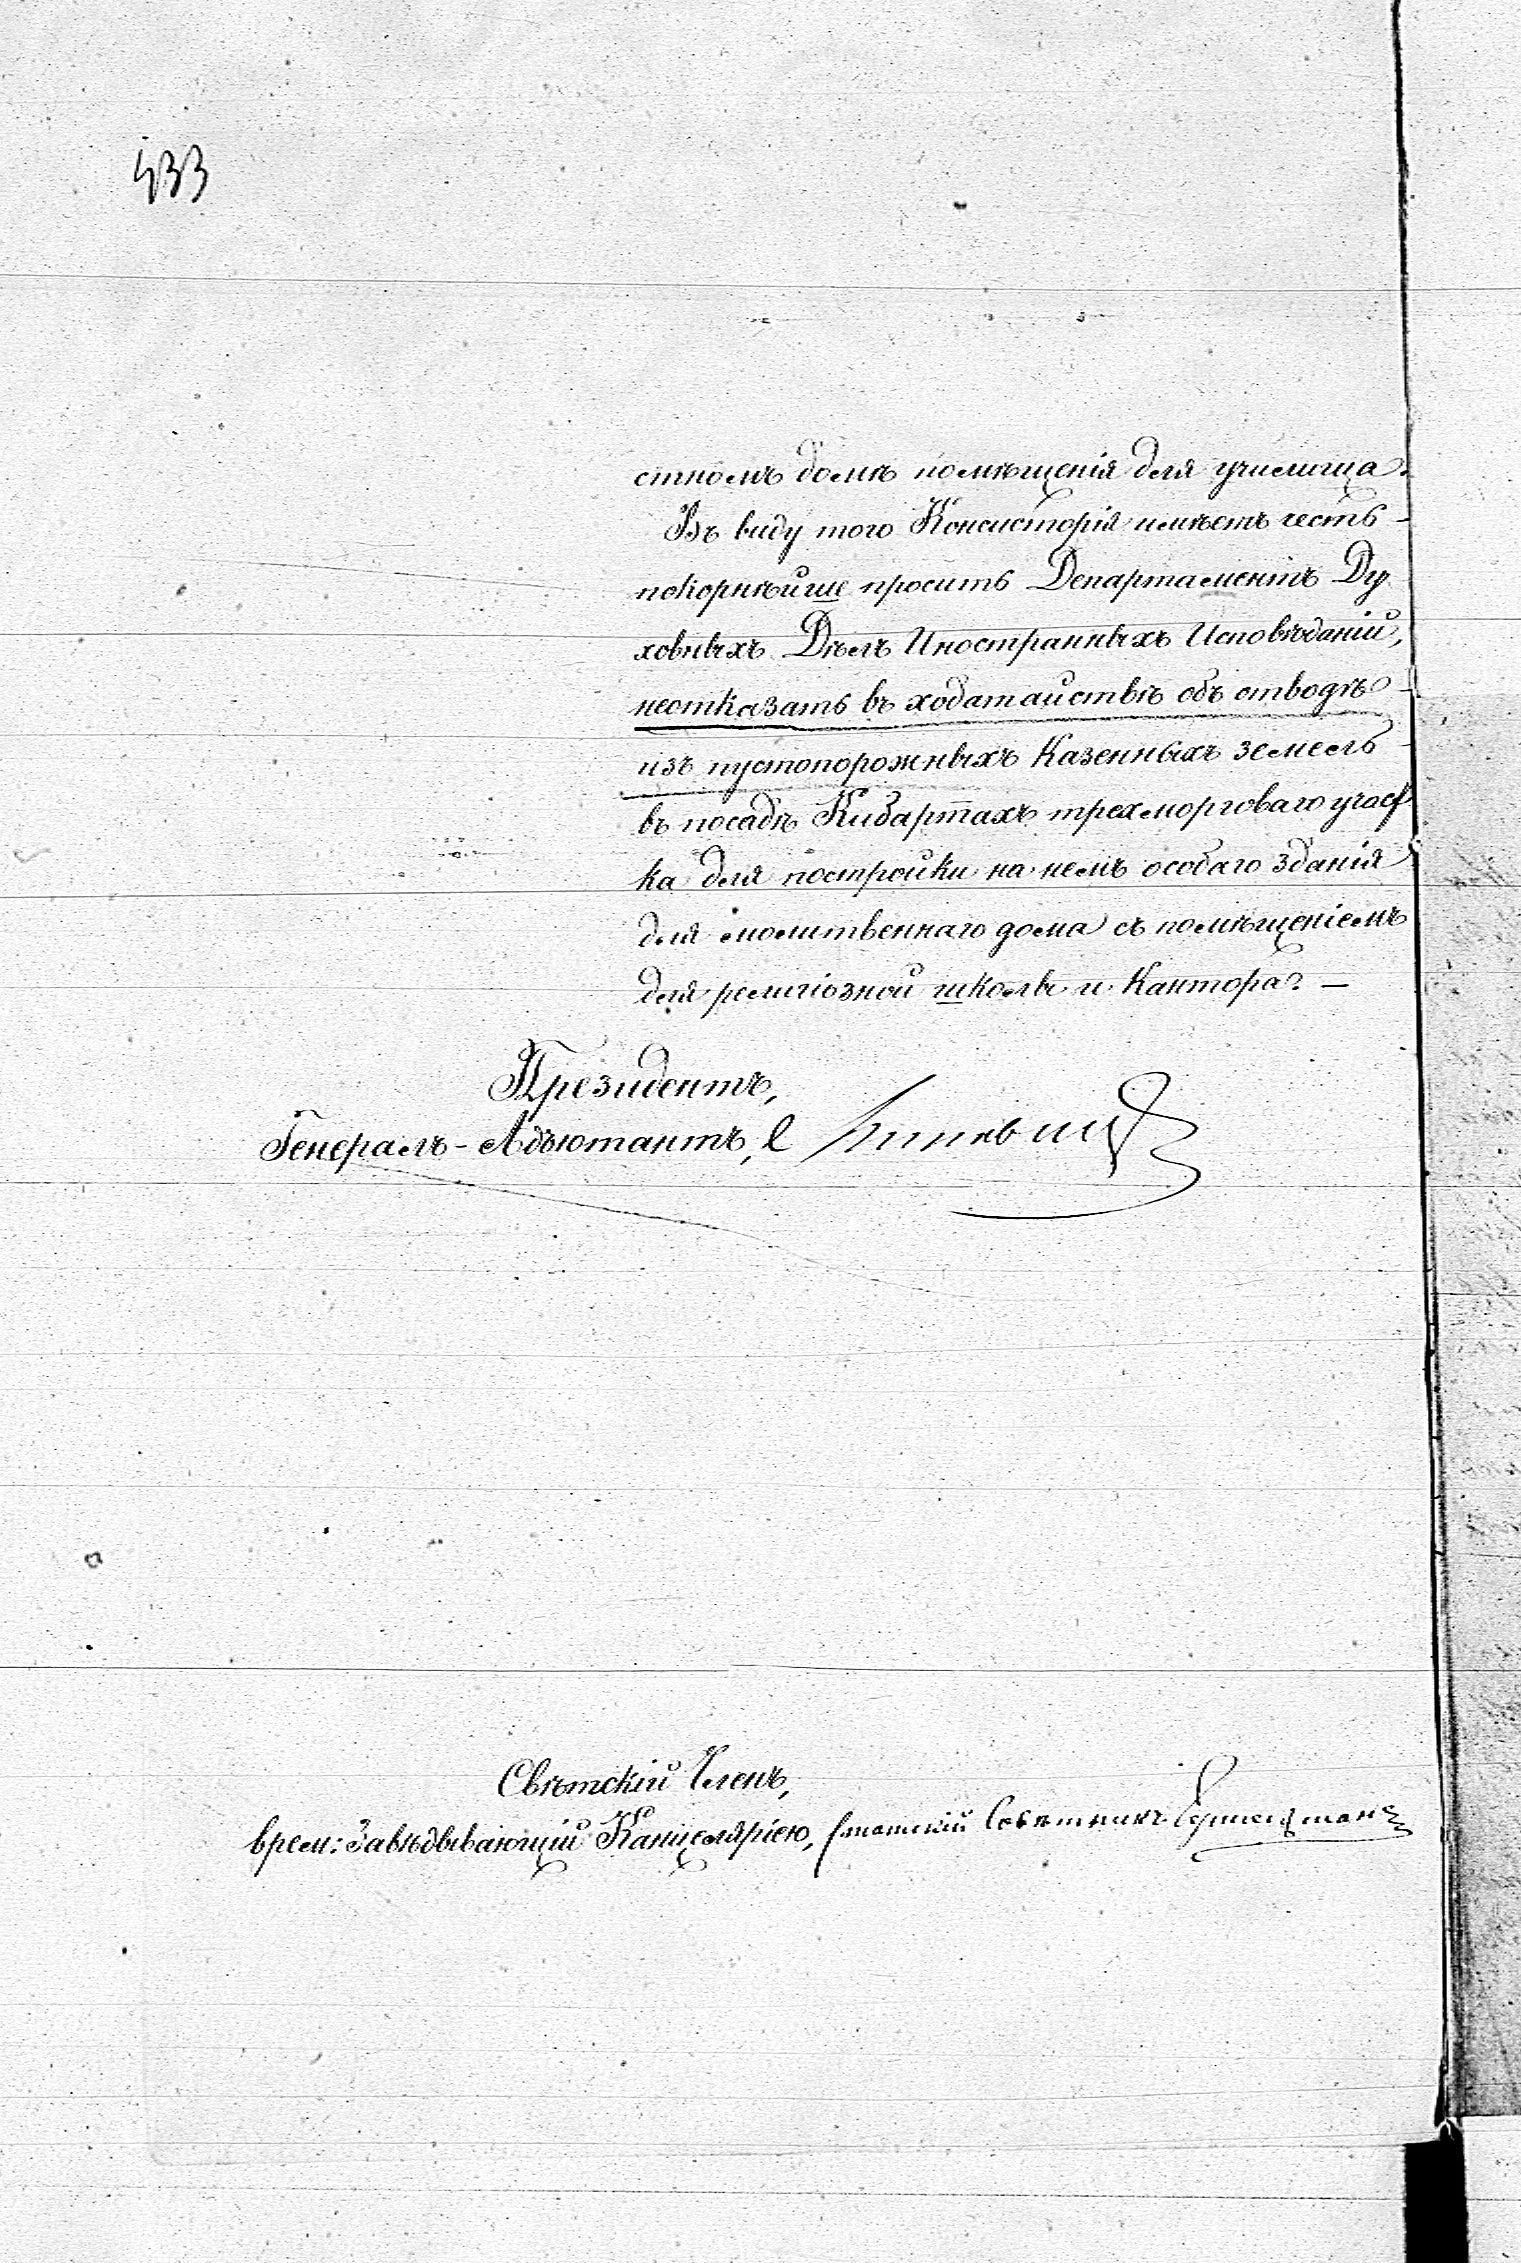 433
стномъ домѣ помѣщенія для училища.
Въ виду того Консисторія имѣетъ честь
покорнѣйше просить Департаментъ Ду
ховныхъ Дѣлъ Иностранныхъ Исповѣданій,
неотказать въ ходатайствѣ объ отводѣ
изъ пустопорожныхъ Казенныхъ земель
въ посадѣ Кибартахъ трехморговаго участ
ка для постройки на немъ особаго зданія
для молитвеннаго дома съ помѣщеніемъ
для религіозной школы и Кантора. —
Президентъ,
Генералъ-Адъютантъ,
Свѣтскій Членъ,
врем: Завѣдывающій Канцеляріею, Статскій Совѣтникъ